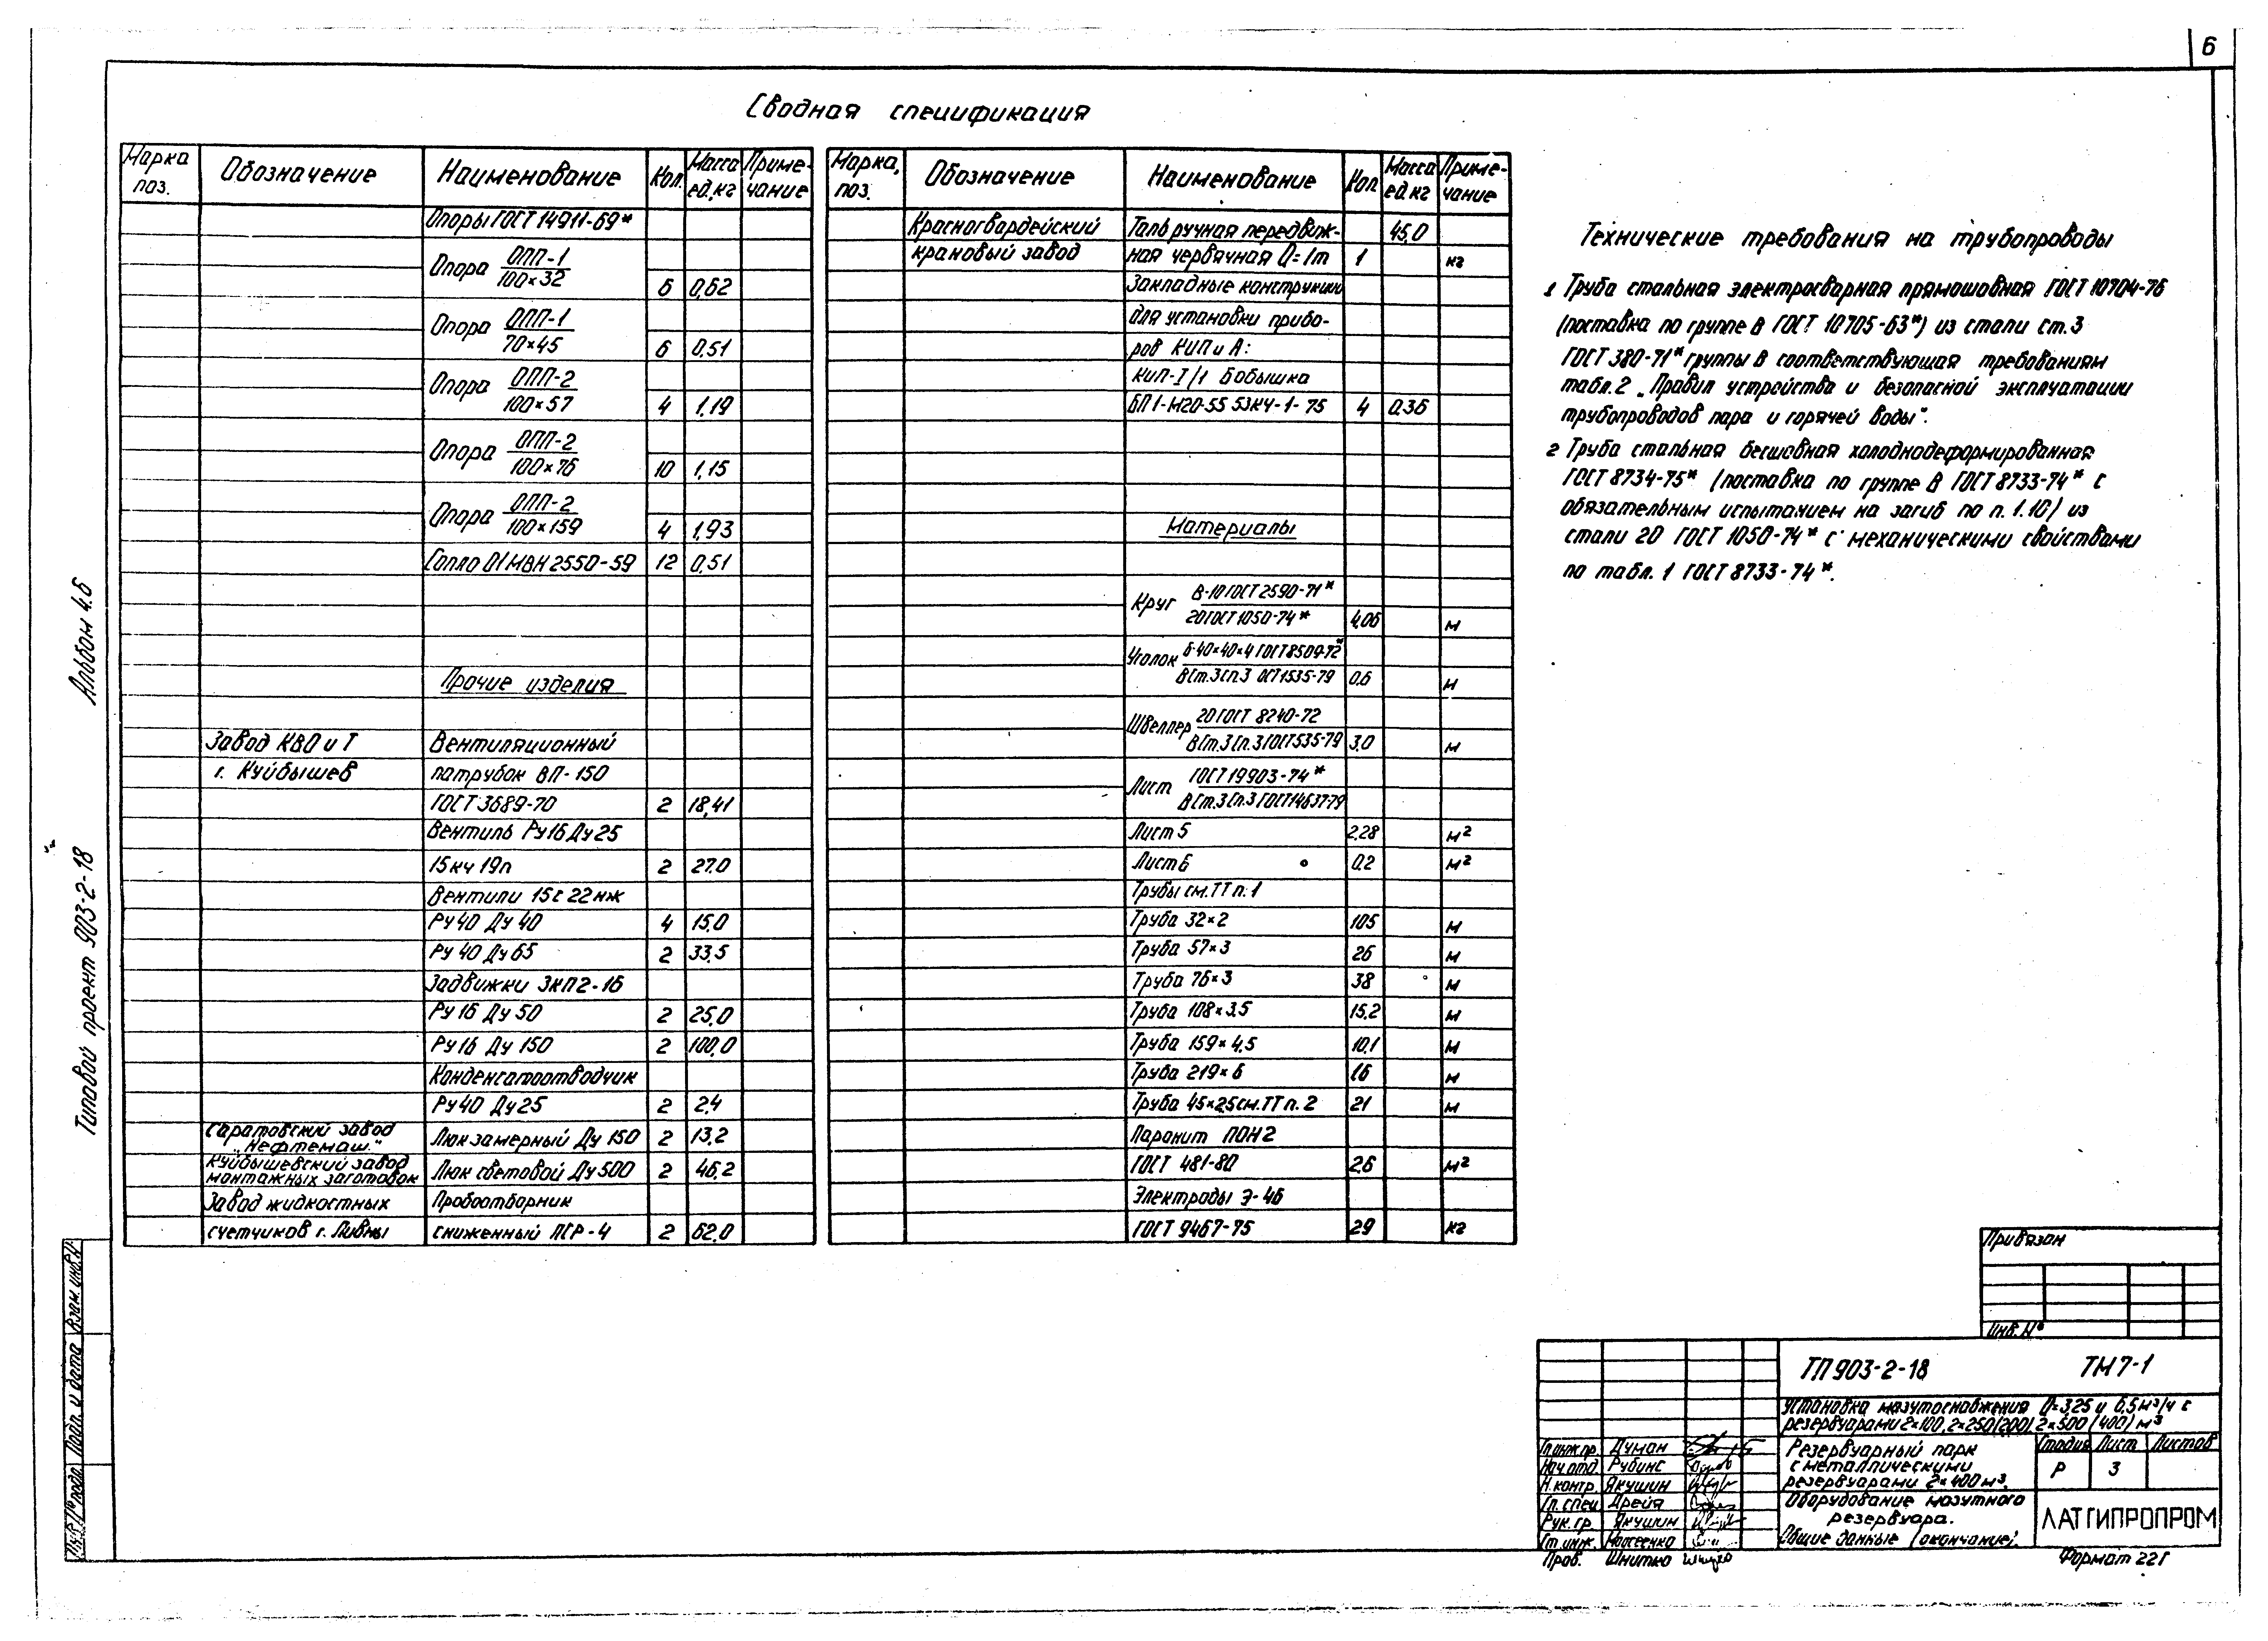 6
Сводная спецификация
Марка поз. Обозначение Наименование Кол. Масса ед.кг Примечание
Опоры ГОСТ 14911-69*
Опора ОПП-1 / 100×32 6 0,62
Опора ОПП-1 / 70×45 6 0,51
Опора ОПП-2 / 100×57 4 1,19
Опора ОПП-2 / 100×76 10 1,15
Опора ОПП-2 / 100×159 4 1,93
Сопло 01 МВН 2550-59 12 0,51
Прочие изделия
Завод КВО и Т Вентиляционный
г. Куйбышев патрубок ВП-150
ГОСТ 3689-70 2 18,41
Вентиль Ру16 Ду25
15кч 19п 2 27.0
Вентили 15с 22нж
Ру 40 Ду 40 4 15.0
Ру 40 Ду 65 2 33.5
Задвижки ЗКП2-16
Ру 16 Ду 50 2 25.0
Ру 16 Ду 150 2 100.0
Конденсатоотводчик
Ру40 Ду25 2 2.4
Саратовский завод „Нефтемаш." Люк замерный Ду 150 2 13,2
Куйбышевский завод монтажных заготовок Люк световой Ду 500 2 46,2
Завод жидкостных Пробоотборник
счетчиков г. Ливны сниженный ПСР-4 2 62.0
Марка, поз. Обозначение Наименование Кол Масса ед.кг Примечание
Красногвардейский Таль ручная передвиж- 45,0
крановый завод ная червячная Q=1т 1 кг
Закладные конструкции
для установки прибо-
ров КИП и А:
КИП-I/1 Бобышка
БП1-М20-55 53КЧ-1-75 4 0.36
Материалы
Круг В-10 ГОСТ 2590-71* / 20 ГОСТ 1050-74* 4,06 м
Уголок Б-40×40×4 ГОСТ 8509-72* / ВСт.3сп3 ОСТ 1535-79 0.6 м
Швеллер 20 ГОСТ 8240-72 / ВСт.3Сп.3 ГОСТ 535-79 3,0 м
Лист ГОСТ 19903-74* / ВСт.3Сп.3 ГОСТ 14637-79
Лист 5 2.28 м²
Лист 6 0.2 м²
Трубы см. ТТ п. 1
Труба 32×2 105 м
Труба 57×3 26 м
Труба 76×3 38 м
Труба 108×3.5 15.2 м
Труба 159×4.5 10.1 м
Труба 219×6 16 м
Труба 45×2,5 см. ТТ п. 2 21 м
Паронит ПОН2
ГОСТ 481-80 2.6 м²
Электроды Э-46
ГОСТ 9467-75 29 кг
Технические требования на трубопроводы
1 Труба стальная электросварная прямошовная ГОСТ 10704-76
(поставка по группе В ГОСТ 10705-63*) из стали ст.3
ГОСТ 380-71* группы В соответствующая требованиям
табл.2 „Правил устройства и безопасной эксплуатации
трубопроводов пара и горячей воды".
2 Труба стальная бесшовная холоднодеформированная
ГОСТ 8734-75* (поставка по группе В ГОСТ 8733-74* с
обязательным испытанием на загиб по п. 1.10) из
стали 20 ГОСТ 1050-74* с механическими свойствами
по табл. 1 ГОСТ 8733-74*.
Альбом 4.6
Типовой проект 903-2-18
Взам. инв. №
Подп. и дата
Инв. № подл.
Привязан
Инв. №
ТП 903-2-18 ТМ 7-1
Установка мазутоснабжения Q=3,25 и 6,5 м³/ч с
резервуарами 2×100, 2×250(200), 2×500 (400) м³
Гл.инж.пр. Думан
Нач.отд. Рубинс
Н.контр. Якушин
Гл. спец. Дрейя
Рук. гр. Якушин
Ст.инж. Моисеенко
Пров. Шнитко
Резервуарный парк
с металлическими
резервуарами 2×400 м³.
Стадия Лист Листов
Р 3
Оборудование мазутного
резервуара.
Общие данные (окончание).
ЛАТГИПРОПРОМ
Формат 22Г